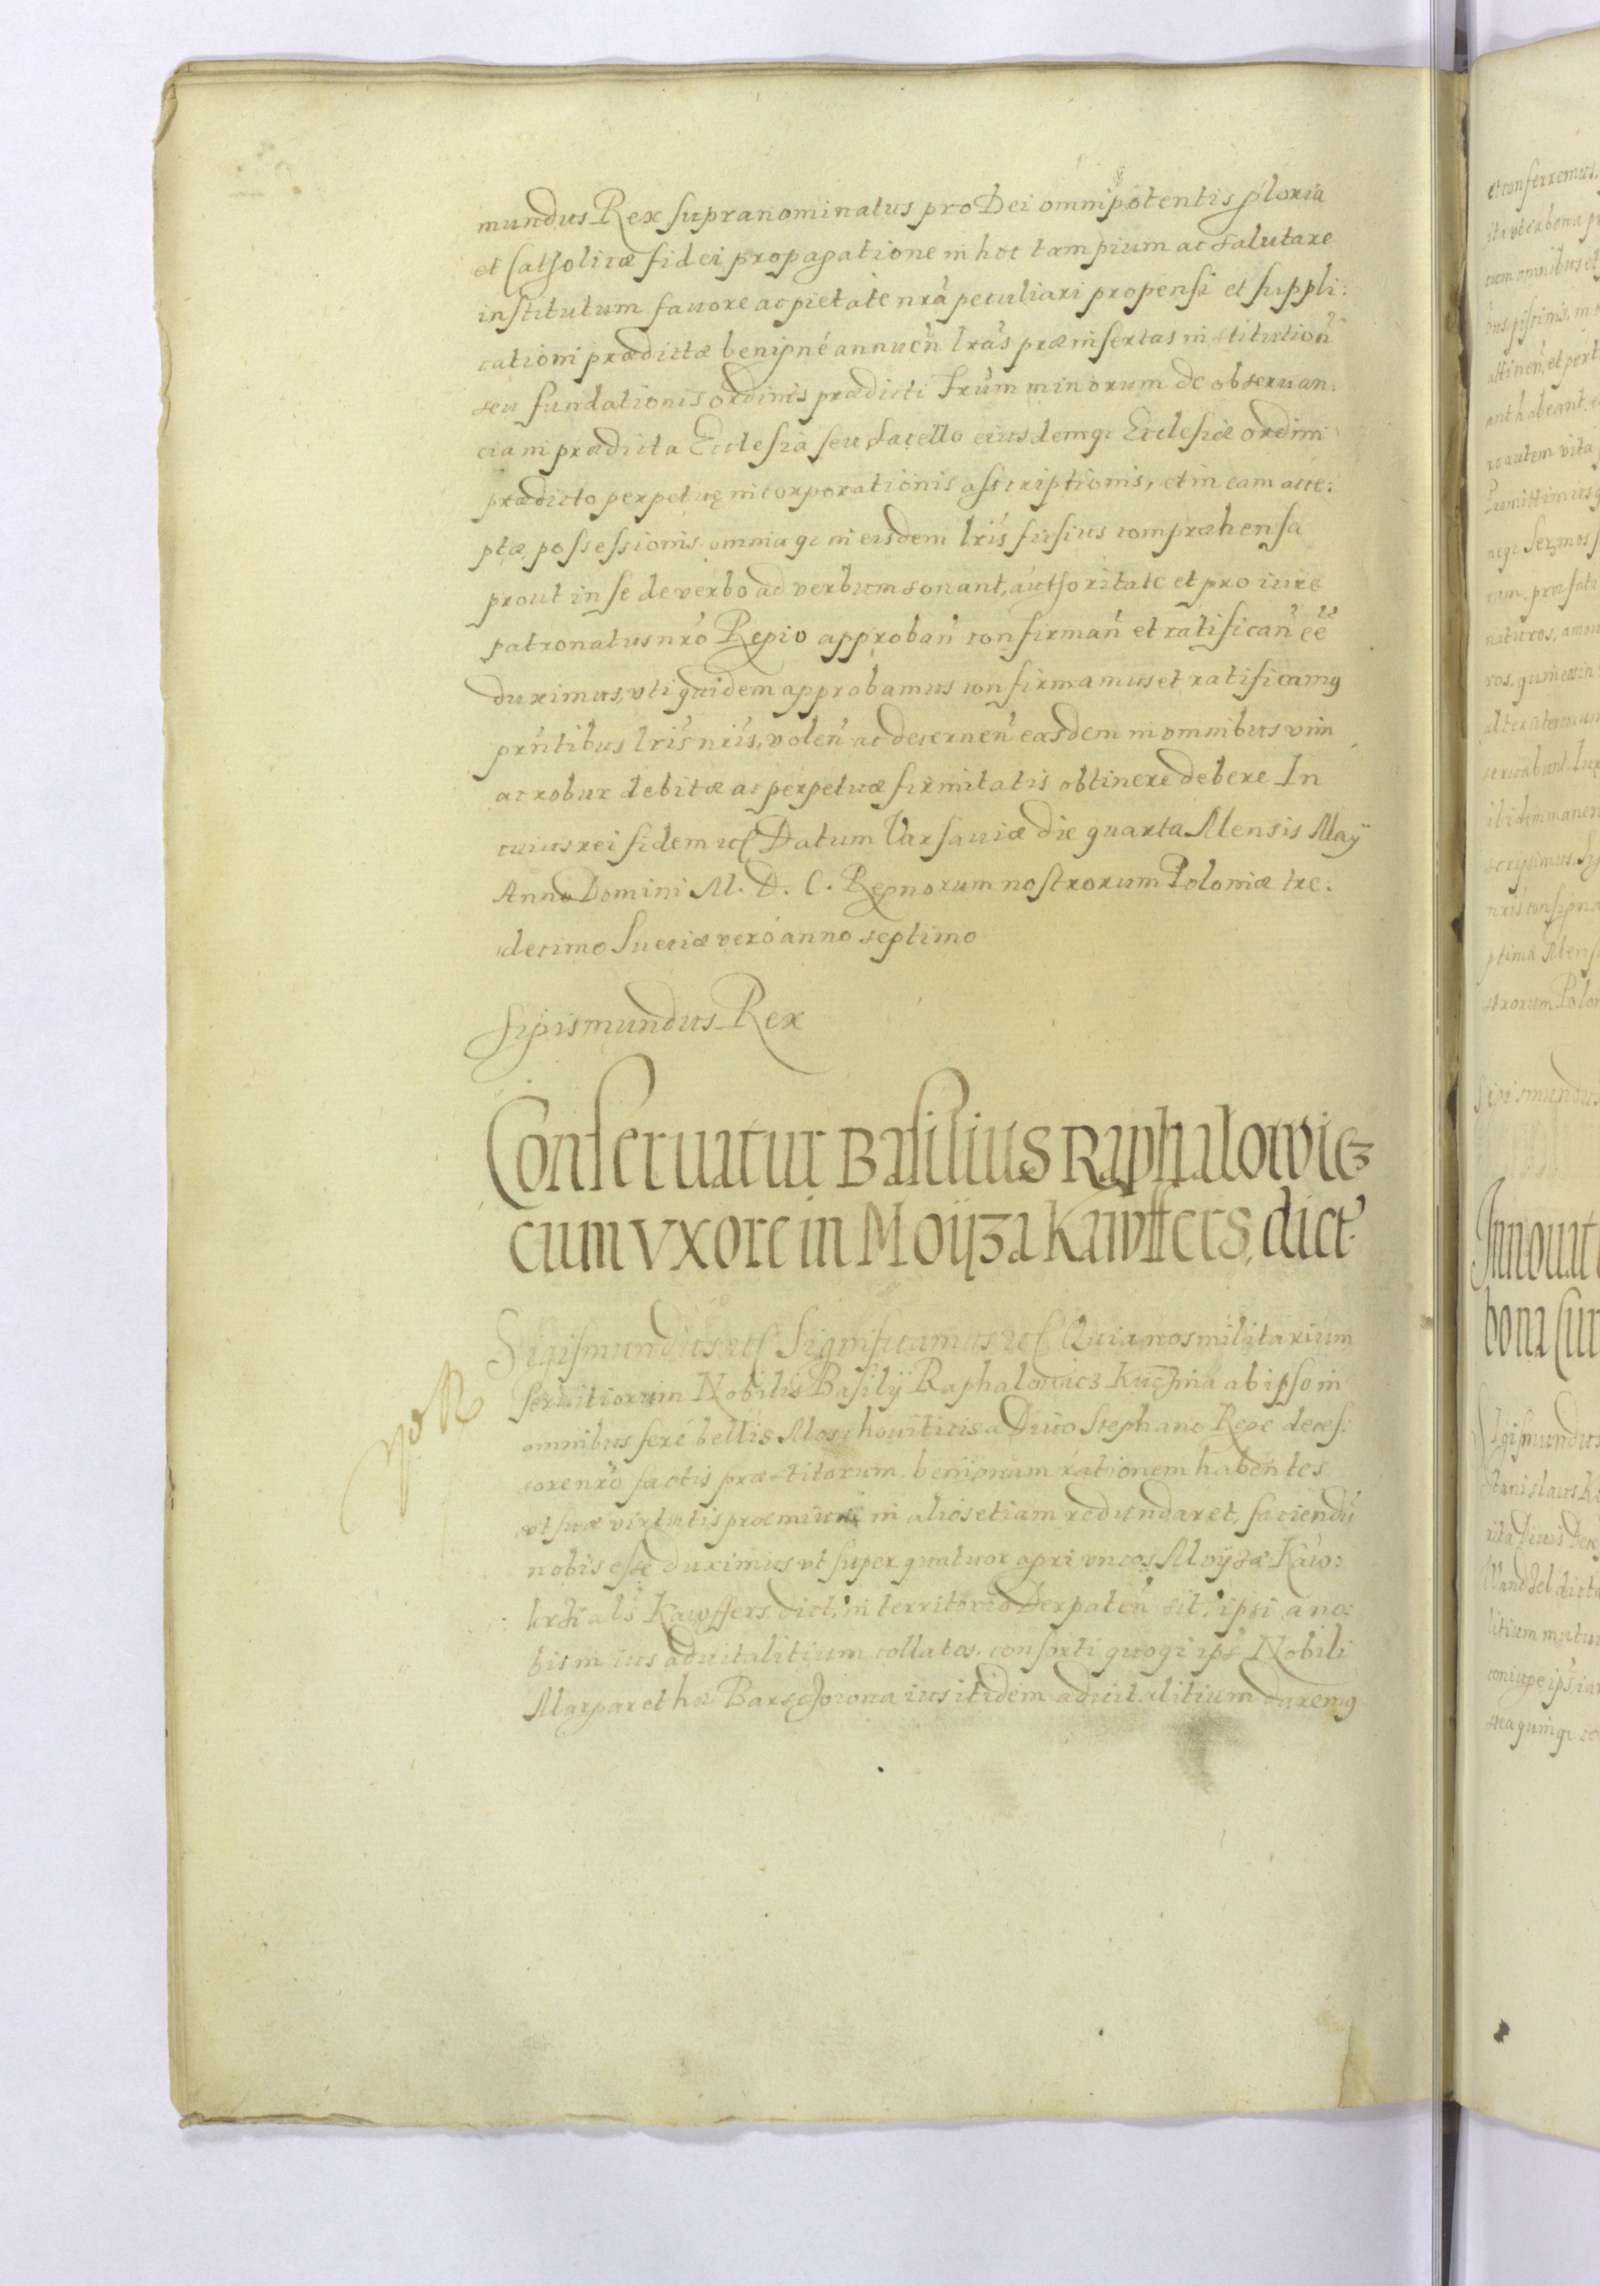 mundus Rex supranominatus pro Dei omnipotentis gloria
et Catholicæ fidei propagatione in hoc tam pium ac salutare
institutum fauore ac pietate nrã peculiari propensi et suppli:
cationi prædictæ benigné annuen̄ lrãs præinsertas institution̄
seu fundationis ordinis prædicti Frũm minorum de obseruan:
cia in prædicta Ecclesia seu Sacello eiusdemq; Ecclesiæ ordini
prædicto perpetuę incorporationis asscriptionis, et in eam acce:
ptæ possessionis omniaq; in eisdem lrĩs fusius compræhensa
prout in se de verbo ad verbum sonant, authoritate et pro iure
patronatus nrõ Regio approban̄ confirman̄ et ratifican̄ eẽ
duximus, vti quidem approbamus confirmamus et ratificamq
prñtibus lrĩs nrĩs, volen̄ ac decernen̄ easdem in omnibus vim
ac robur debitæ ac perpetuæ firmitatis obtinere debere In
cuius rei fidem etc Datum Varsauiæ die quarta Mensis Maÿ
Anno Domini M. D. C. Regnorum nostrorum Poloniæ tre:
decimo Sueciæ veró anno septimo
Sigismundus Rex
Conseruatur Basilius Raphalowicz
cum vxore in Moijza Kawffers, dict.
Sigismundus etc Significamus etc Quia nos militarium
seruitiorum Nobilis Basilÿ Raphalowicz Kuczmia ab ipso in
omnibus feré bellis Moschouiticis a Diuo Stephano Rege deces:
sore nrõ factis præstitorum benignam rationem habentes
vt suæ virtutis præmium in alios etiam redundaret, faciendũ
nobis esse duximus vt super quatuor agri vncos Moÿzæ Kaw:
als Kawffers dict. in territorio Derpaten̄ sit. ipsi a no:
bis in ius aduitalitium collatos. consorti quoq; ips̄ Nobili
Margarethæ ius itidem aduitalitium daremq